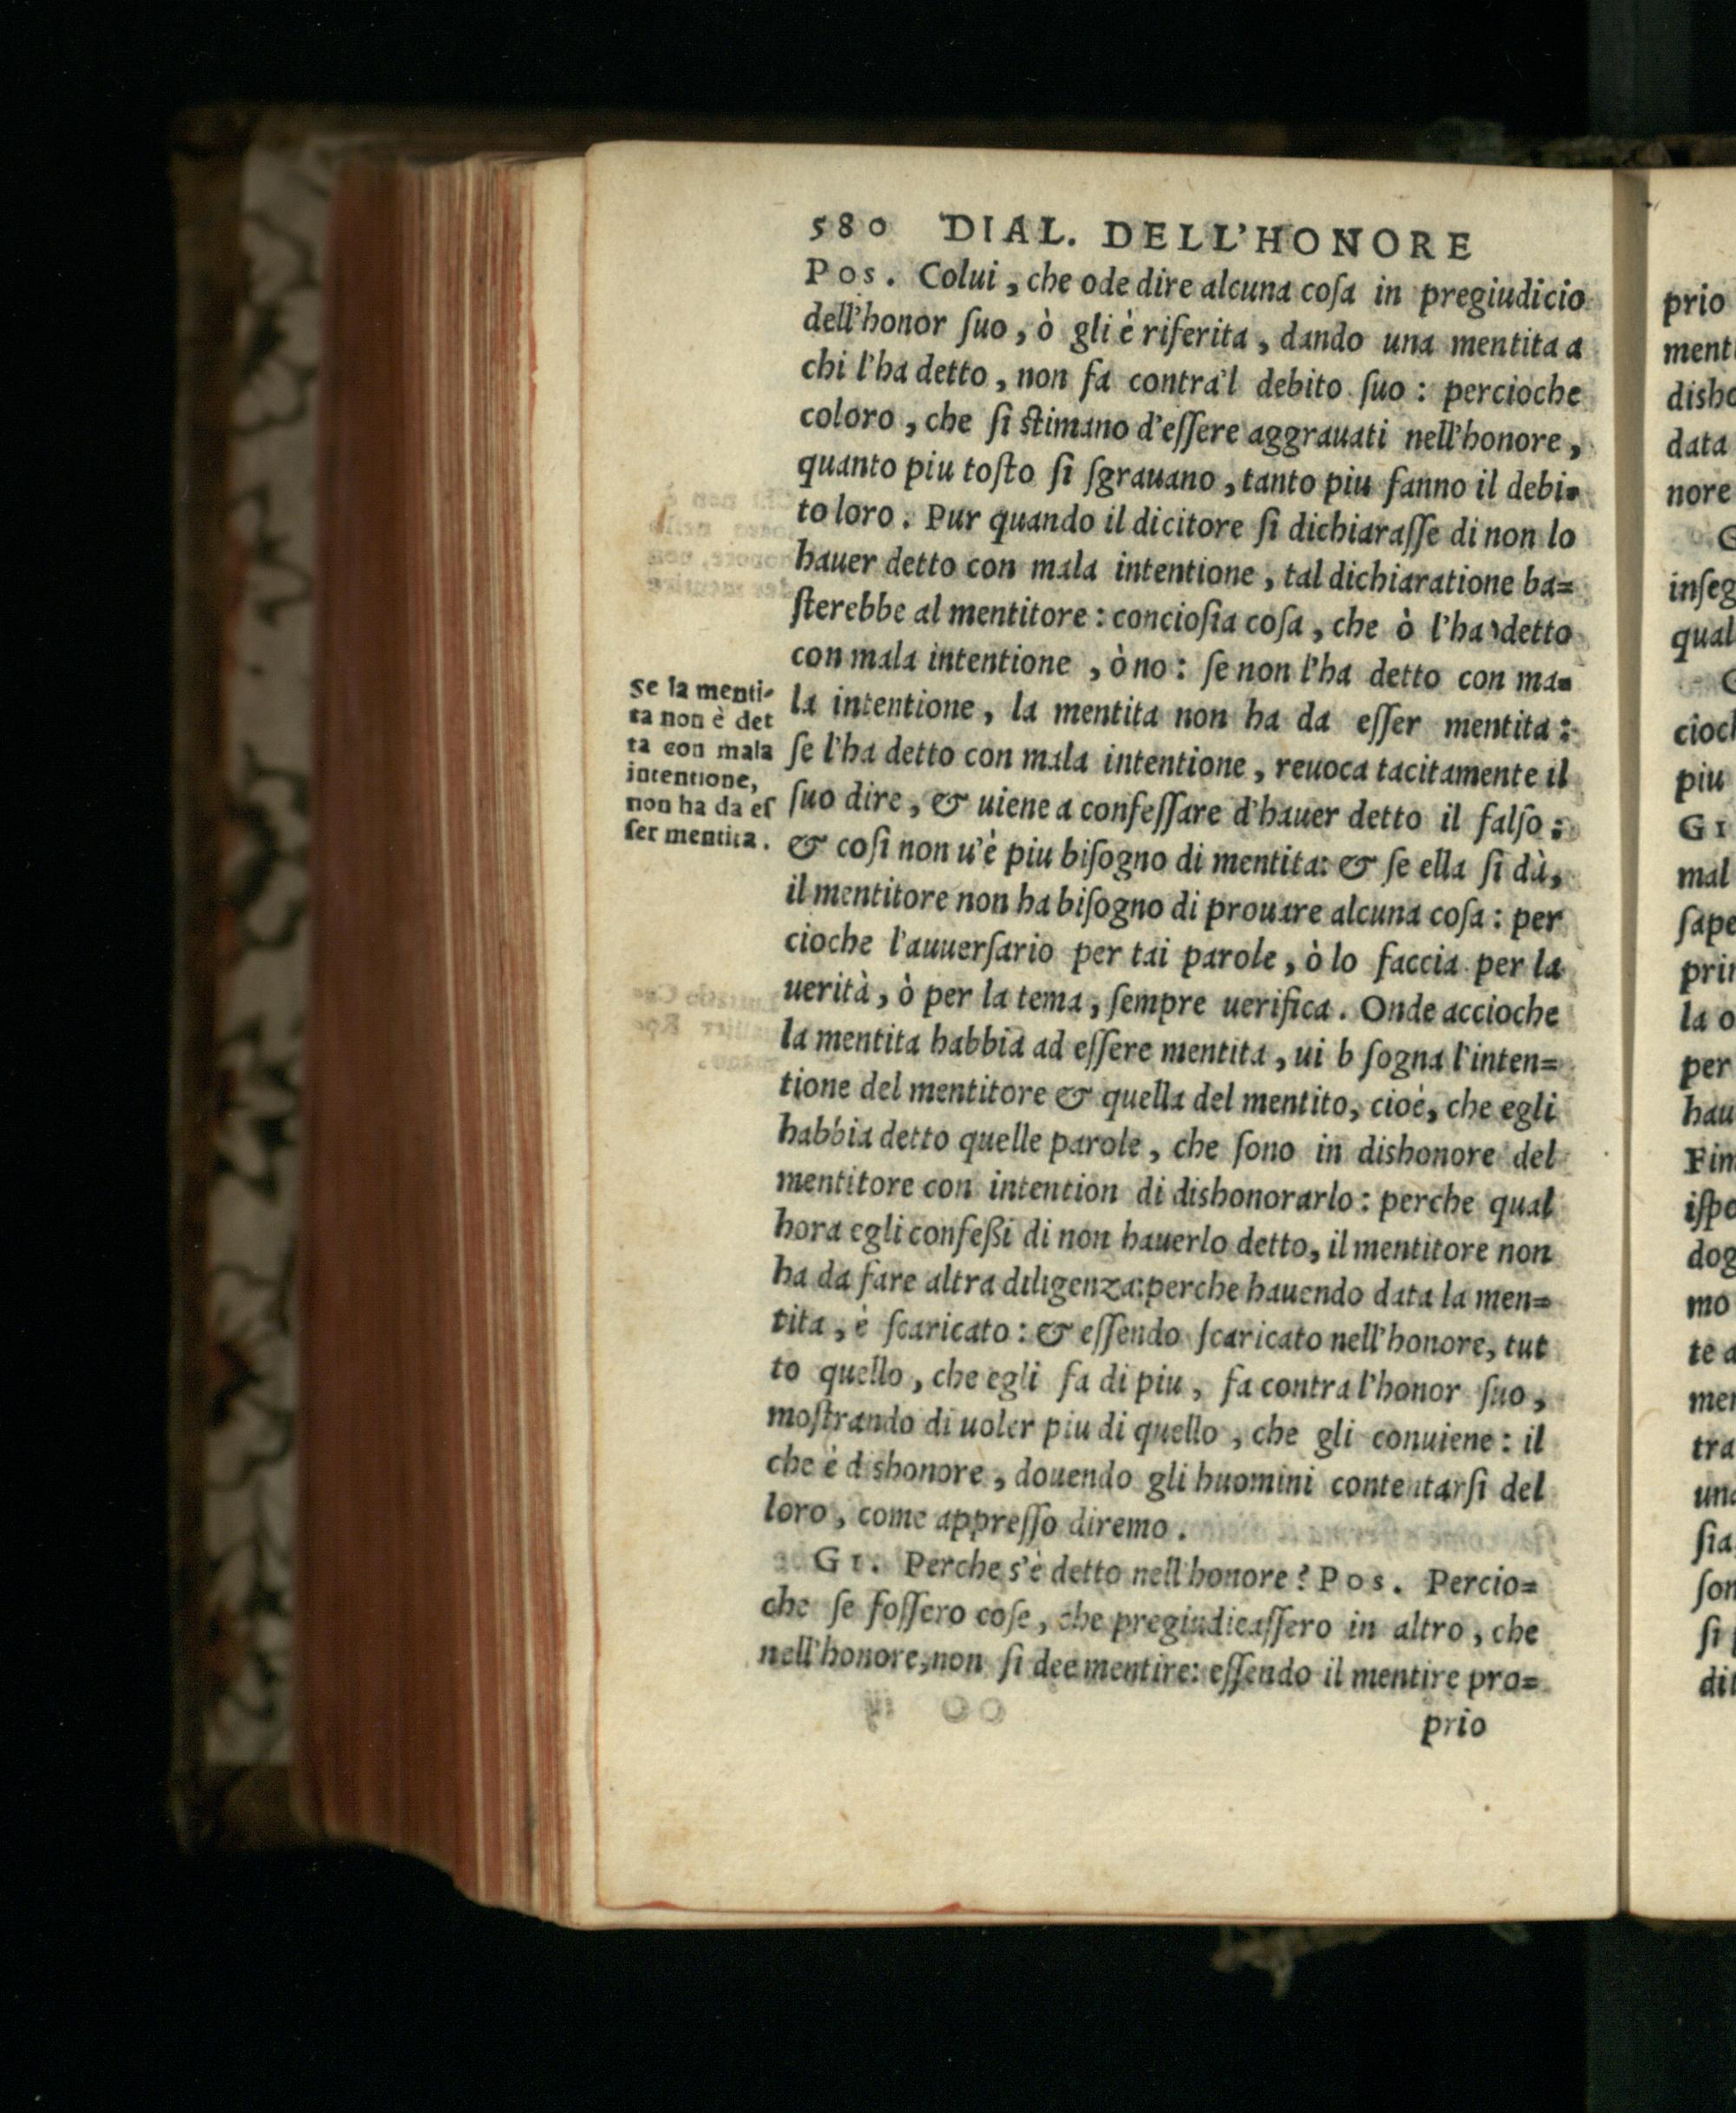 580 DIAL. DELL'HONORE
Pos. Colui, che ode dire alcuna coſa in pregiudicio
dell'honor ſuo, ò gli è riferita, dando una mentita a
chi l'ha detto, non fa contra'l debito ſuo: percioche
coloro, che ſi ſtimano d'eſſere aggrauati nell'honore,
quanto piu toſto ſi ſgrauano, tanto piu fanno il debi-
to loro. Pur quando il dicitore ſi dichiaraſſe di non lo
hauer detto con mala intentione, tal dichiaratione ba=
ſterebbe al mentitore: concioſia coſa, che ò l'ha detto
con mala intentione, ò no: ſe non l'ha detto con ma-
la intentione, la mentita non ha da eſſer mentita:
ſe l'ha detto con mala intentione, reuoca tacitamente il
ſuo dire, & uiene a confeſſare d'hauer detto il falſo:
& coſi non u'è piu biſogno di mentita: & ſe ella ſi dà,
il mentitore non ha biſogno di prouare alcuna coſa: per
cioche l'auuerſario per tai parole, ò lo faccia per la
uerità, ò per la tema, ſempre uerifica. Onde accioche
la mentita habbia ad eſſere mentita, ui b ſogna l'inten=
tione del mentitore & quella del mentito, cioè, che egli
habbia detto quelle parole, che ſono in dishonore del
mentitore con intention di dishonorarlo: perche qual
hora egli confeßi di non hauerlo detto, il mentitore non
ha da fare altra diligenza: perche hauendo data la men=
tita, è ſcaricato: & eſſendo ſcaricato nell'honore, tut
to quello, che egli fa di piu, fa contra l'honor ſuo,
moſtrando di uoler piu di quello, che gli conuiene: il
che è d shonore, douendo gli huomini contentarſi del
loro, come appreſſo diremo.
GI. Perche s'è detto nell'honore? Pos. Percio=
che ſe foſſero coſe, che pregiudicaſſero in altro, che
nell'honore, non ſi dee mentire: eſſendo il mentire pro=
prio
Se la menti-
ta non è det
ta con mala
intentione,
non ha da eſ
ſer mentita.
prio
ment
disho
data
nore
G
inſeg
qual
G
cioch
piu
GI
mal
ſape
prin
la o
per
hau
Fin
iſpo
dog
mo
te a
men
tra
una
ſia
ſon
ſi
dit